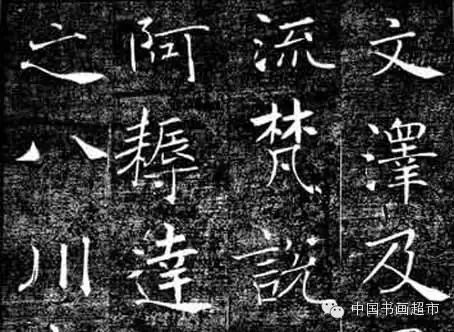 文澤及
流梵説
阿耨達
之八川
中国书画超市